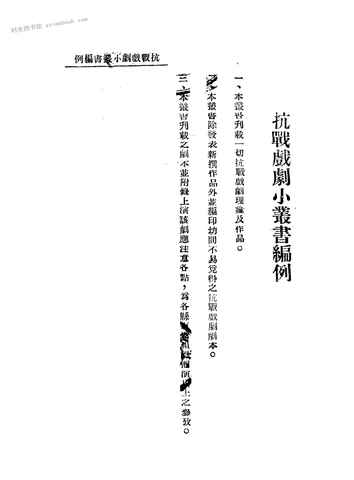 时光图书馆 xxxxbook.com
例編書叢小劇戲戰抗
抗戰戲劇小叢書編例
一、本叢書刋載一切抗戰戲劇理論及作品。
二、本叢書除發表新撰作品外並編印坊間不易覓得之抗戰戲劇劇本。
三、本叢書刋載之劇本並附錄上演該劇應注意各點，為各縣 演 上之參攷。